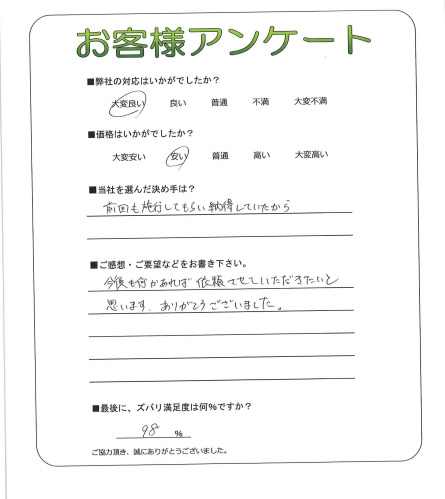 お客様アンケート
■弊社の対応はいかがでしたか？
大変良い 良い 普通 不満 大変不満
■価格はいかがでしたか？
大変安い 安い 普通 高い 大変高い
■当社を選んだ決め手は？
前回も施行してもらい納得していたから
■ご感想・ご要望などをお書き下さい。
今後も何かあれば依頼させていただきたいと
思います。ありがとうございました。
■最後に、ズバリ満足度は何%ですか？
98 %
ご協力頂き、誠にありがとうございました。